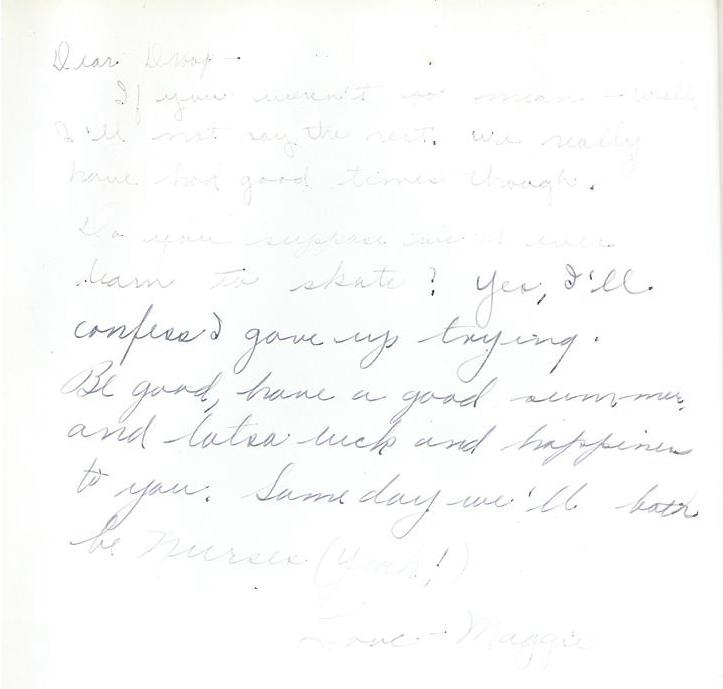 Dear Droop -
If you weren't so mean - well,
I'll not say the rest. We really
have had good times though.
Do you suppose we'll ever
learn to skate? Yes, I'll
confess I gave up trying.
Be good, have a good summer,
and lotsa luck and happiness
to you. Some day we'll both
be Nurses (Yeah!)
Love - Maggie